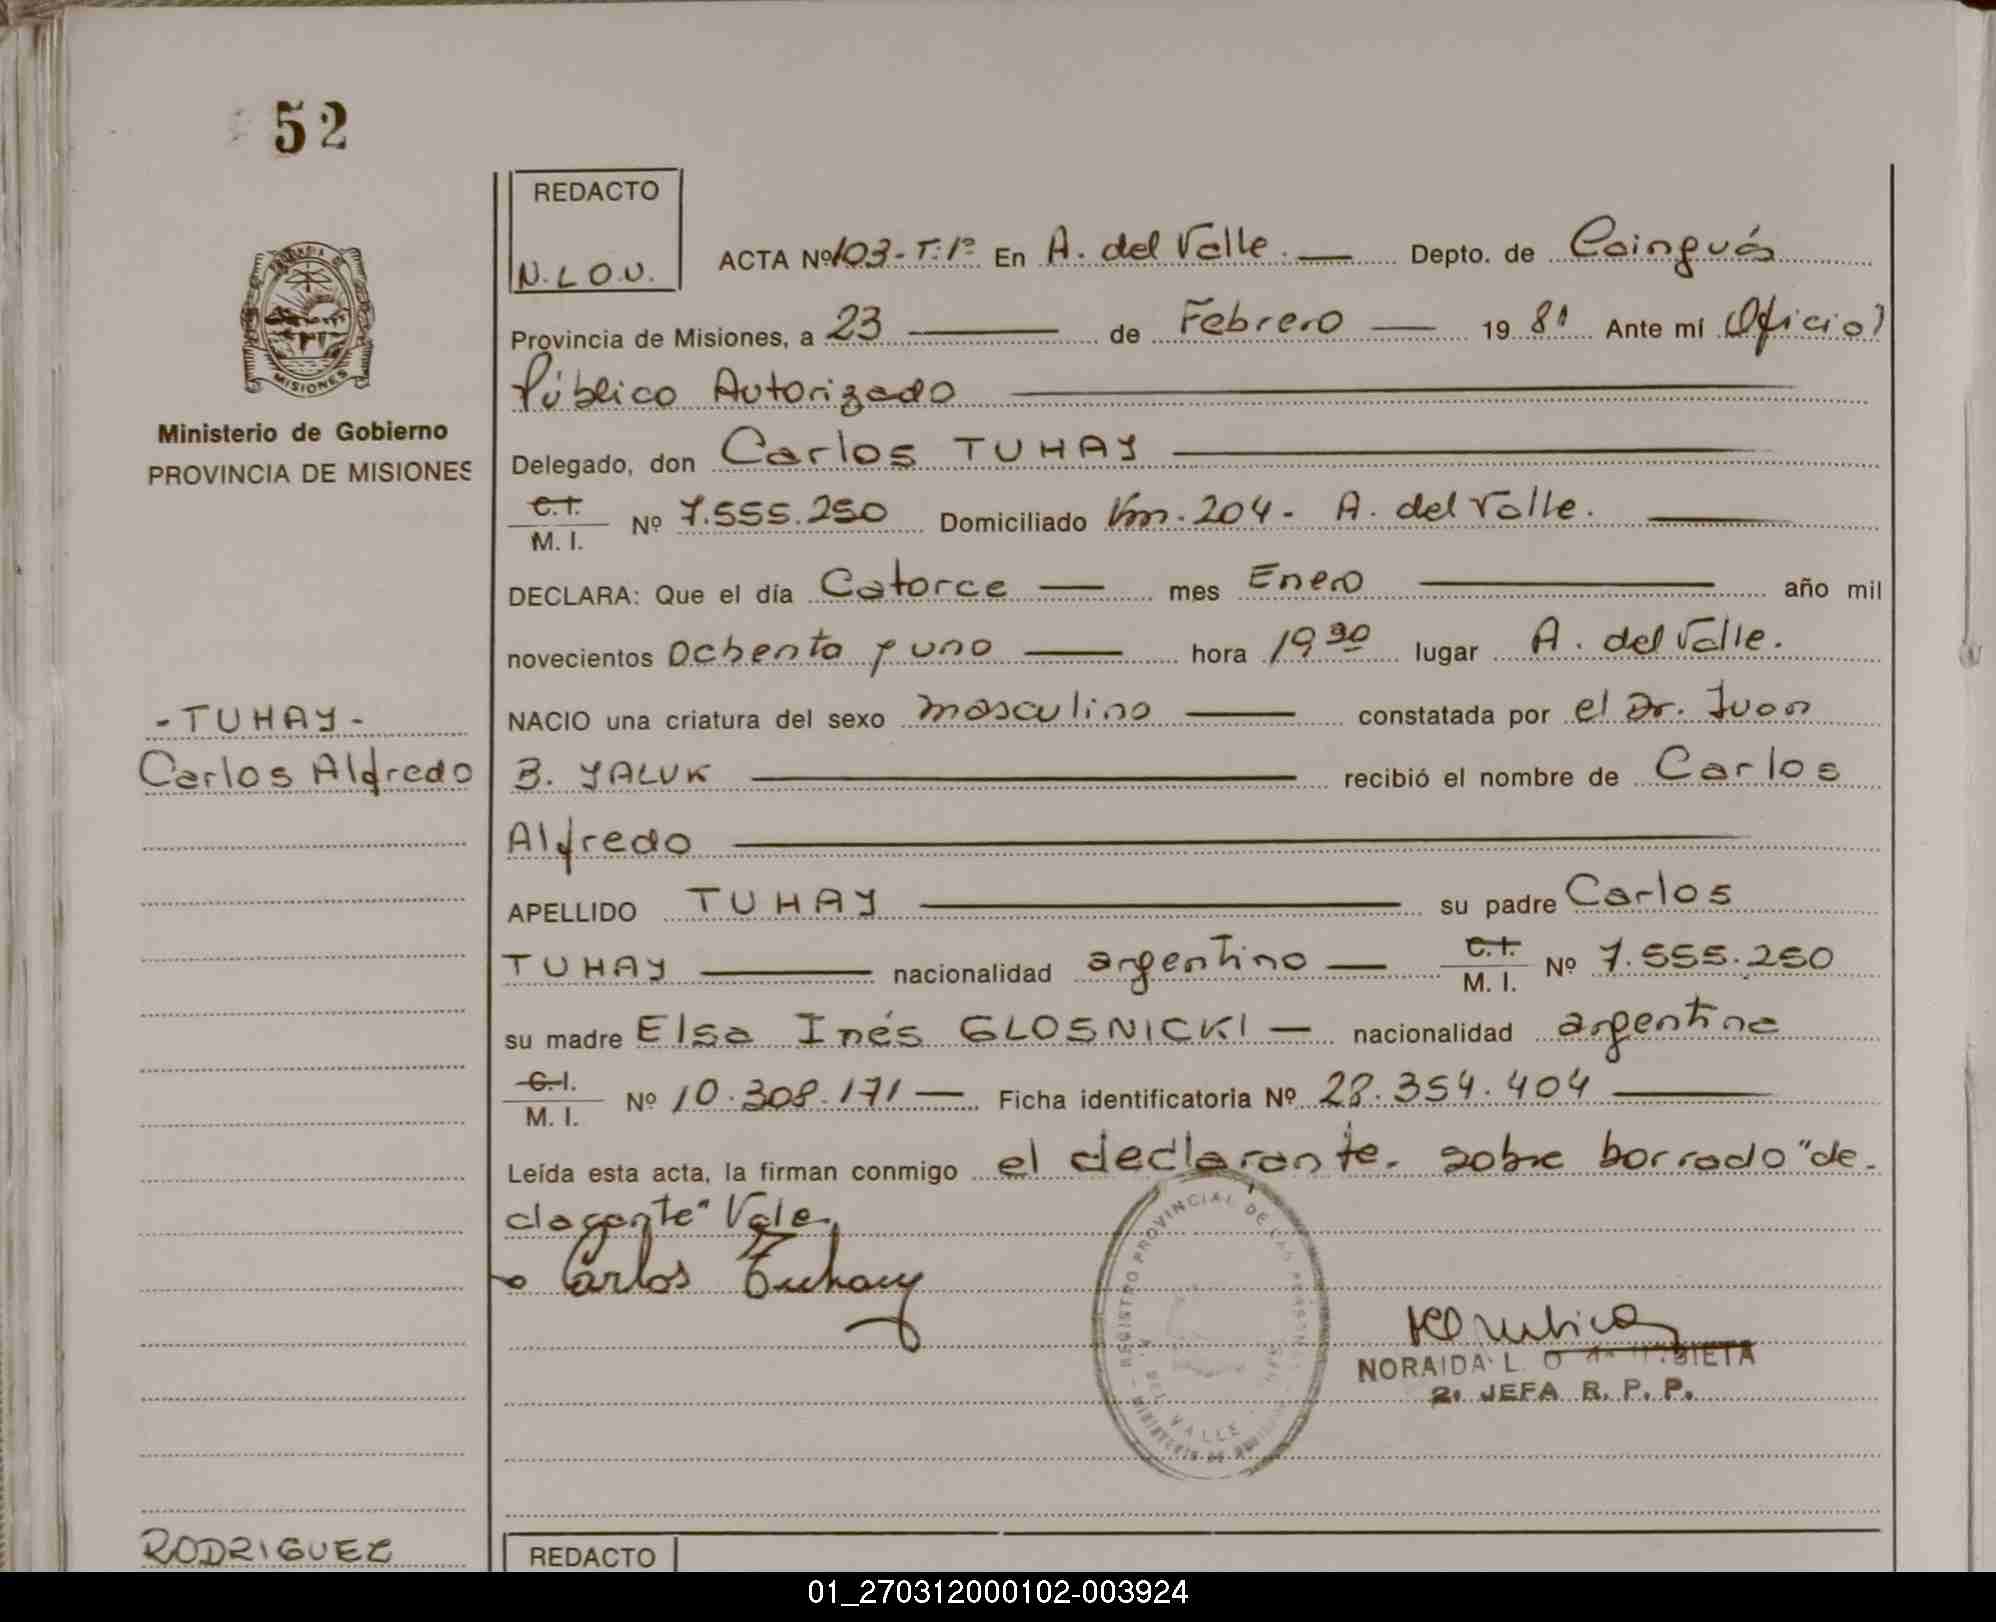 52
REDACTO
N.L.O.U.
ACTA Nº 103-T:1º En A. del Valle. Depto. de Cainguás
Provincia de Misiones, a 23 de Febrero 1981 Ante mí Oficial
Público Autorizado
Delegado, don Carlos TUHAY
C.I. M. I. Nº 7.555.250 Domiciliado Km. 204 - A. del Valle.
DECLARA: Que el día Catorce mes Enero año mil
novecientos Ochenta y uno hora 19 30 lugar A. del Valle.
NACIO una criatura del sexo masculino constatada por el Dr. Juan
B. YALUK recibió el nombre de Carlos
Alfredo
APELLIDO TUHAY su padre Carlos
TUHAY nacionalidad argentino C.I. M. I. Nº 7.555.250
su madre Elsa Inés GLOSNICKI nacionalidad argentina
C.I. M. I. Nº 10.308.171 Ficha identificatoria Nº 28.354.404
Leída esta acta, la firman conmigo el declarante. sobre borrado "de-
clarante" Vale.
Carlos Tuhay
REGISTRO PROVINCIAL DE LAS
DEL VALLE
NORAIDA L. O
2. JEFA R. P. P.
PROVINCIA DE
MISIONES
Ministerio de Gobierno
PROVINCIA DE MISIONES
-TUHAY-
Carlos Alfredo
RODRIGUEZ
REDACTO
01_270312000102-003924